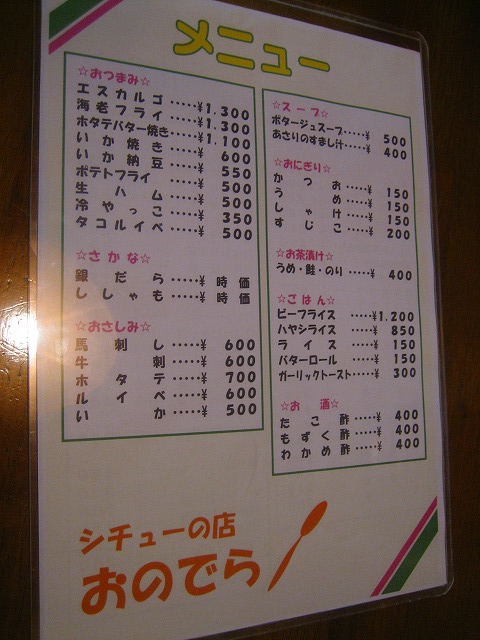 メニュー
☆おつまみ☆
エスカルゴ・・・・・¥1,300
海老フライ・・・・・¥1,300
ホタテバター焼き・・・・・¥1,100
いか焼き・・・・・¥ 600
いか納豆・・・・・¥ 550
ポテトフライ ・・・・・¥ 500
生ハム・・・・・¥ 500
冷やっこ・・・・・¥ 350
タコルイベ・・・・・¥ 500
☆さかな☆
銀だら・・・・・¥ 時価
ししゃも・・・・・¥ 時価
☆おさしみ☆
馬刺し・・・・・¥ 600
牛刺・・・・・¥ 600
ホタテ・・・・・¥ 700
ルイベ・・・・・¥ 600
いか・・・・・¥ 500
☆スープ☆
ポタージュスープ・・・・・¥ 500
あさりのすまし汁・・・・・¥ 400
☆おにぎり☆
かつお・・・・・¥ 150
うめ・・・・・¥ 150
しゃけ・・・・・¥ 150
すじこ・・・・・¥ 200
☆お茶漬け☆
うめ・鮭・のり・・・・・¥ 400
☆ごはん☆
ビーフライス ・・・・・¥1,200
ハヤシライス ・・・・・¥ 850
ライス ・・・・・¥ 150
バターロール ・・・・・¥ 150
ガーリックトースト・・・・・¥ 300
☆お酒☆
たこ酢・・・・・¥ 400
もずく酢・・・・・¥ 400
わかめ酢・・・・・¥ 400
シチューの店
おのでら